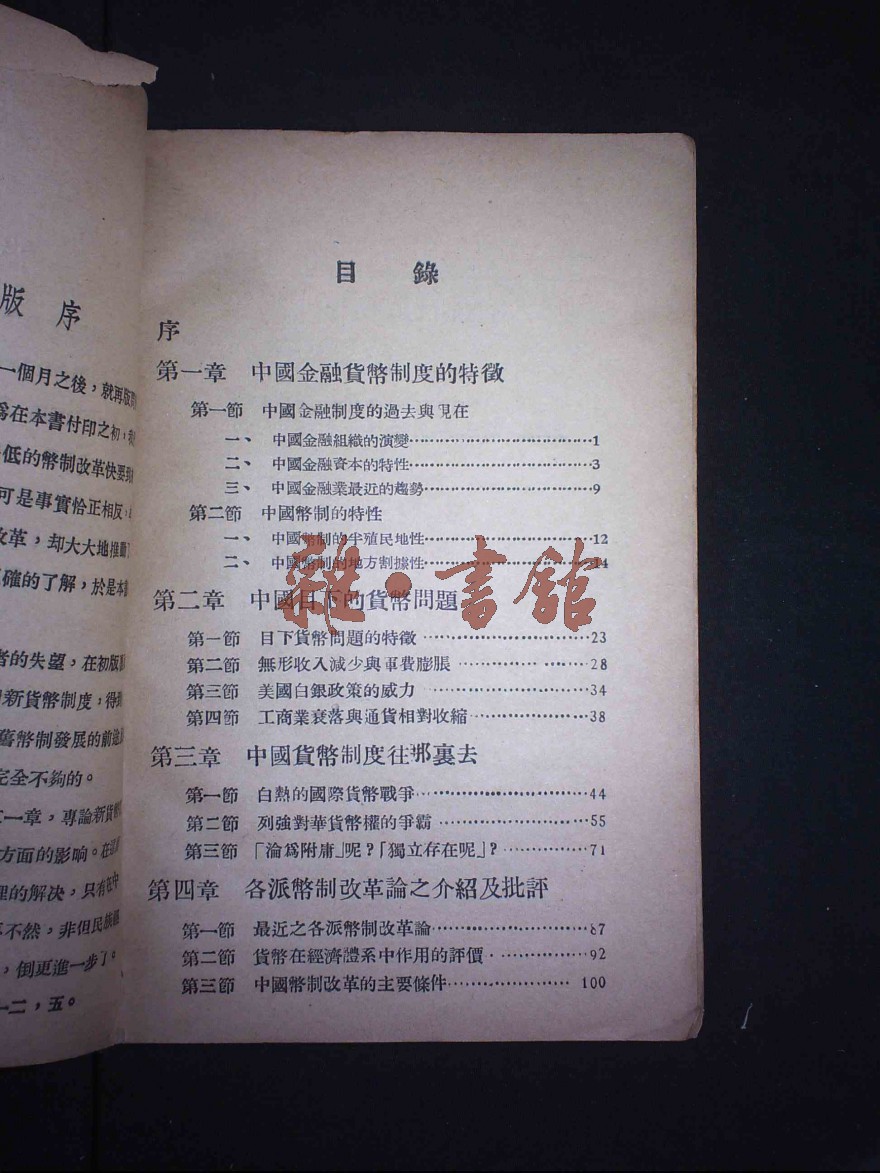 版 序
一個月之後，就再版
爲在本書付印之初，
低的幣制改革快要
可是事實恰正相反，
改革，却大大地推動
確的了解，於是本
者的失望，在初版
新貨幣制度，得
舊幣制發展的前途
完全不夠的。
一章，專論新貨幣
方面的影响。在這
的解決，只有在中
不然，非但民族
，倒更進一步了。
一二，五。
目 錄
序
第一章 中國金融貨幣制度的特徵
第一節 中國金融制度的過去與現在
一、 中國金融組織的演變……1
二、 中國金融資本的特性……3
三、 中國金融業最近的趨勢……9
第二節 中國幣制的特性
一、 中國幣制的半殖民地性……12
二、 中國幣制的地方割據性……14
第二章 中國目下的貨幣問題
第一節 目下貨幣問題的特徵……23
第二節 無形收入減少與軍費膨脹……28
第三節 美國白銀政策的威力……34
第四節 工商業衰落與通貨相對收縮……38
第三章 中國貨幣制度往那裏去
第一節 白熱的國際貨幣戰爭……44
第二節 列強對華貨幣權的爭霸……55
第三節 「淪爲附庸」呢？「獨立存在呢」？……71
第四章 各派幣制改革論之介紹及批評
第一節 最近之各派幣制改革論……87
第二節 貨幣在經濟體系中作用的評價……92
第三節 中國幣制改革的主要條件……100
雜·書館